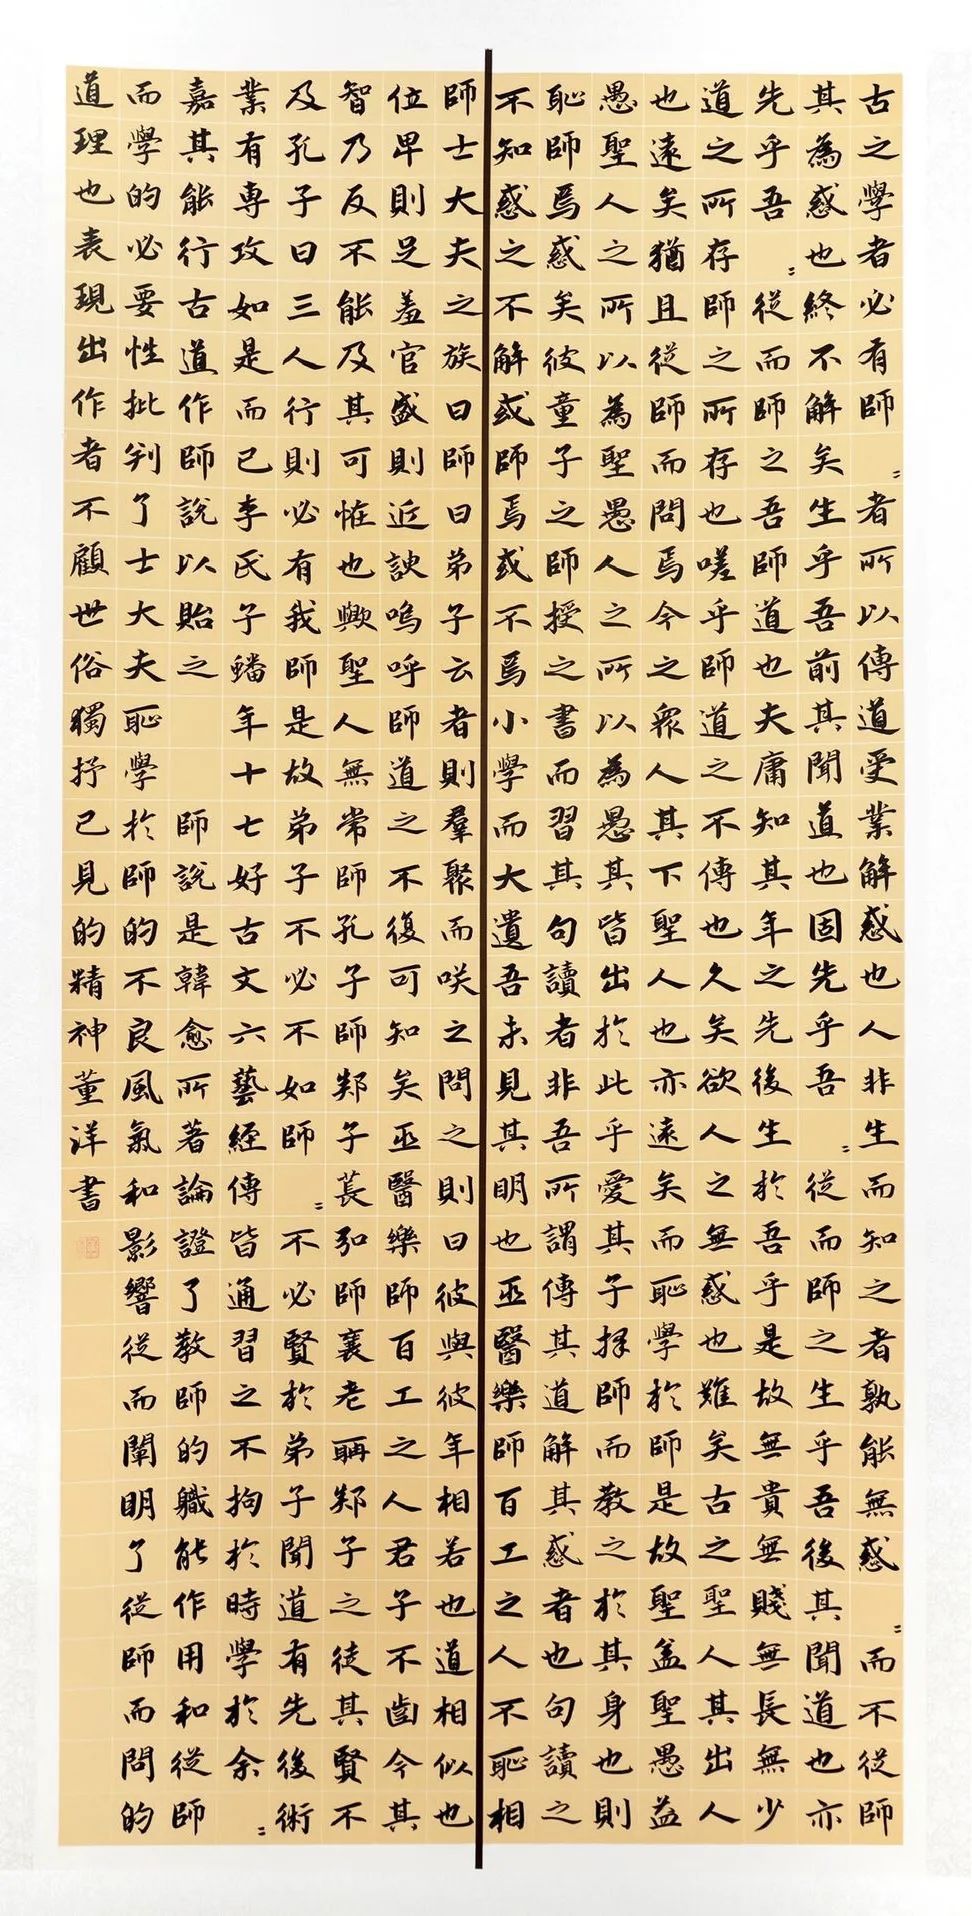 古之學者必有師〻者所以傳道受業解惑也人非生而知之者孰能無惑〻而不從師
其為惑也終不解矣生乎吾前其聞道也固先乎吾〻從而師之生乎吾後其聞道也亦
先乎吾〻從而師之吾師道也夫庸知其年之先後生於吾乎是故無貴無賤無長無少
道之所存師之所存也嗟乎師道之不傳也久矣欲人之無惑也難矣古之聖人其出人
也遠矣猶且從師而問焉今之眾人其下聖人也亦遠矣而恥學於師是故聖益聖愚益
愚聖人之所以為聖愚人之所以為愚其皆出於此乎愛其子擇師而教之於其身也則
恥師焉惑矣彼童子之師授之書而習其句讀者非吾所謂傳其道解其惑者也句讀之
不知惑之不解或師焉或不焉小學而大遺吾未見其明也巫醫樂師百工之人不恥相
師士大夫之族曰師曰弟子云者則羣聚而咲之問之則曰彼與彼年相若也道相似也
位卑則足羞官盛則近諛嗚呼師道之不復可知矣巫醫樂師百工之人君子不齒今其
智乃反不能及其可恠也歟聖人無常師孔子師郯子萇弘師襄老聃郯子之徒其賢不
及孔子曰三人行則必有我師是故弟子不必不如師〻不必賢於弟子聞道有先後術
業有專攻如是而已李氏子蟠年十七好古文六藝經傳皆通習之不拘於時學於余〻
嘉其能行古道作師說以貽之 師說是韓愈所著論證了教師的職能作用和從師
而學的必要性批判了士大夫恥學於師的不良風氣和影響從而闡明了從師而問的
道理也表現出作者不顧世俗獨抒己見的精神董洋書